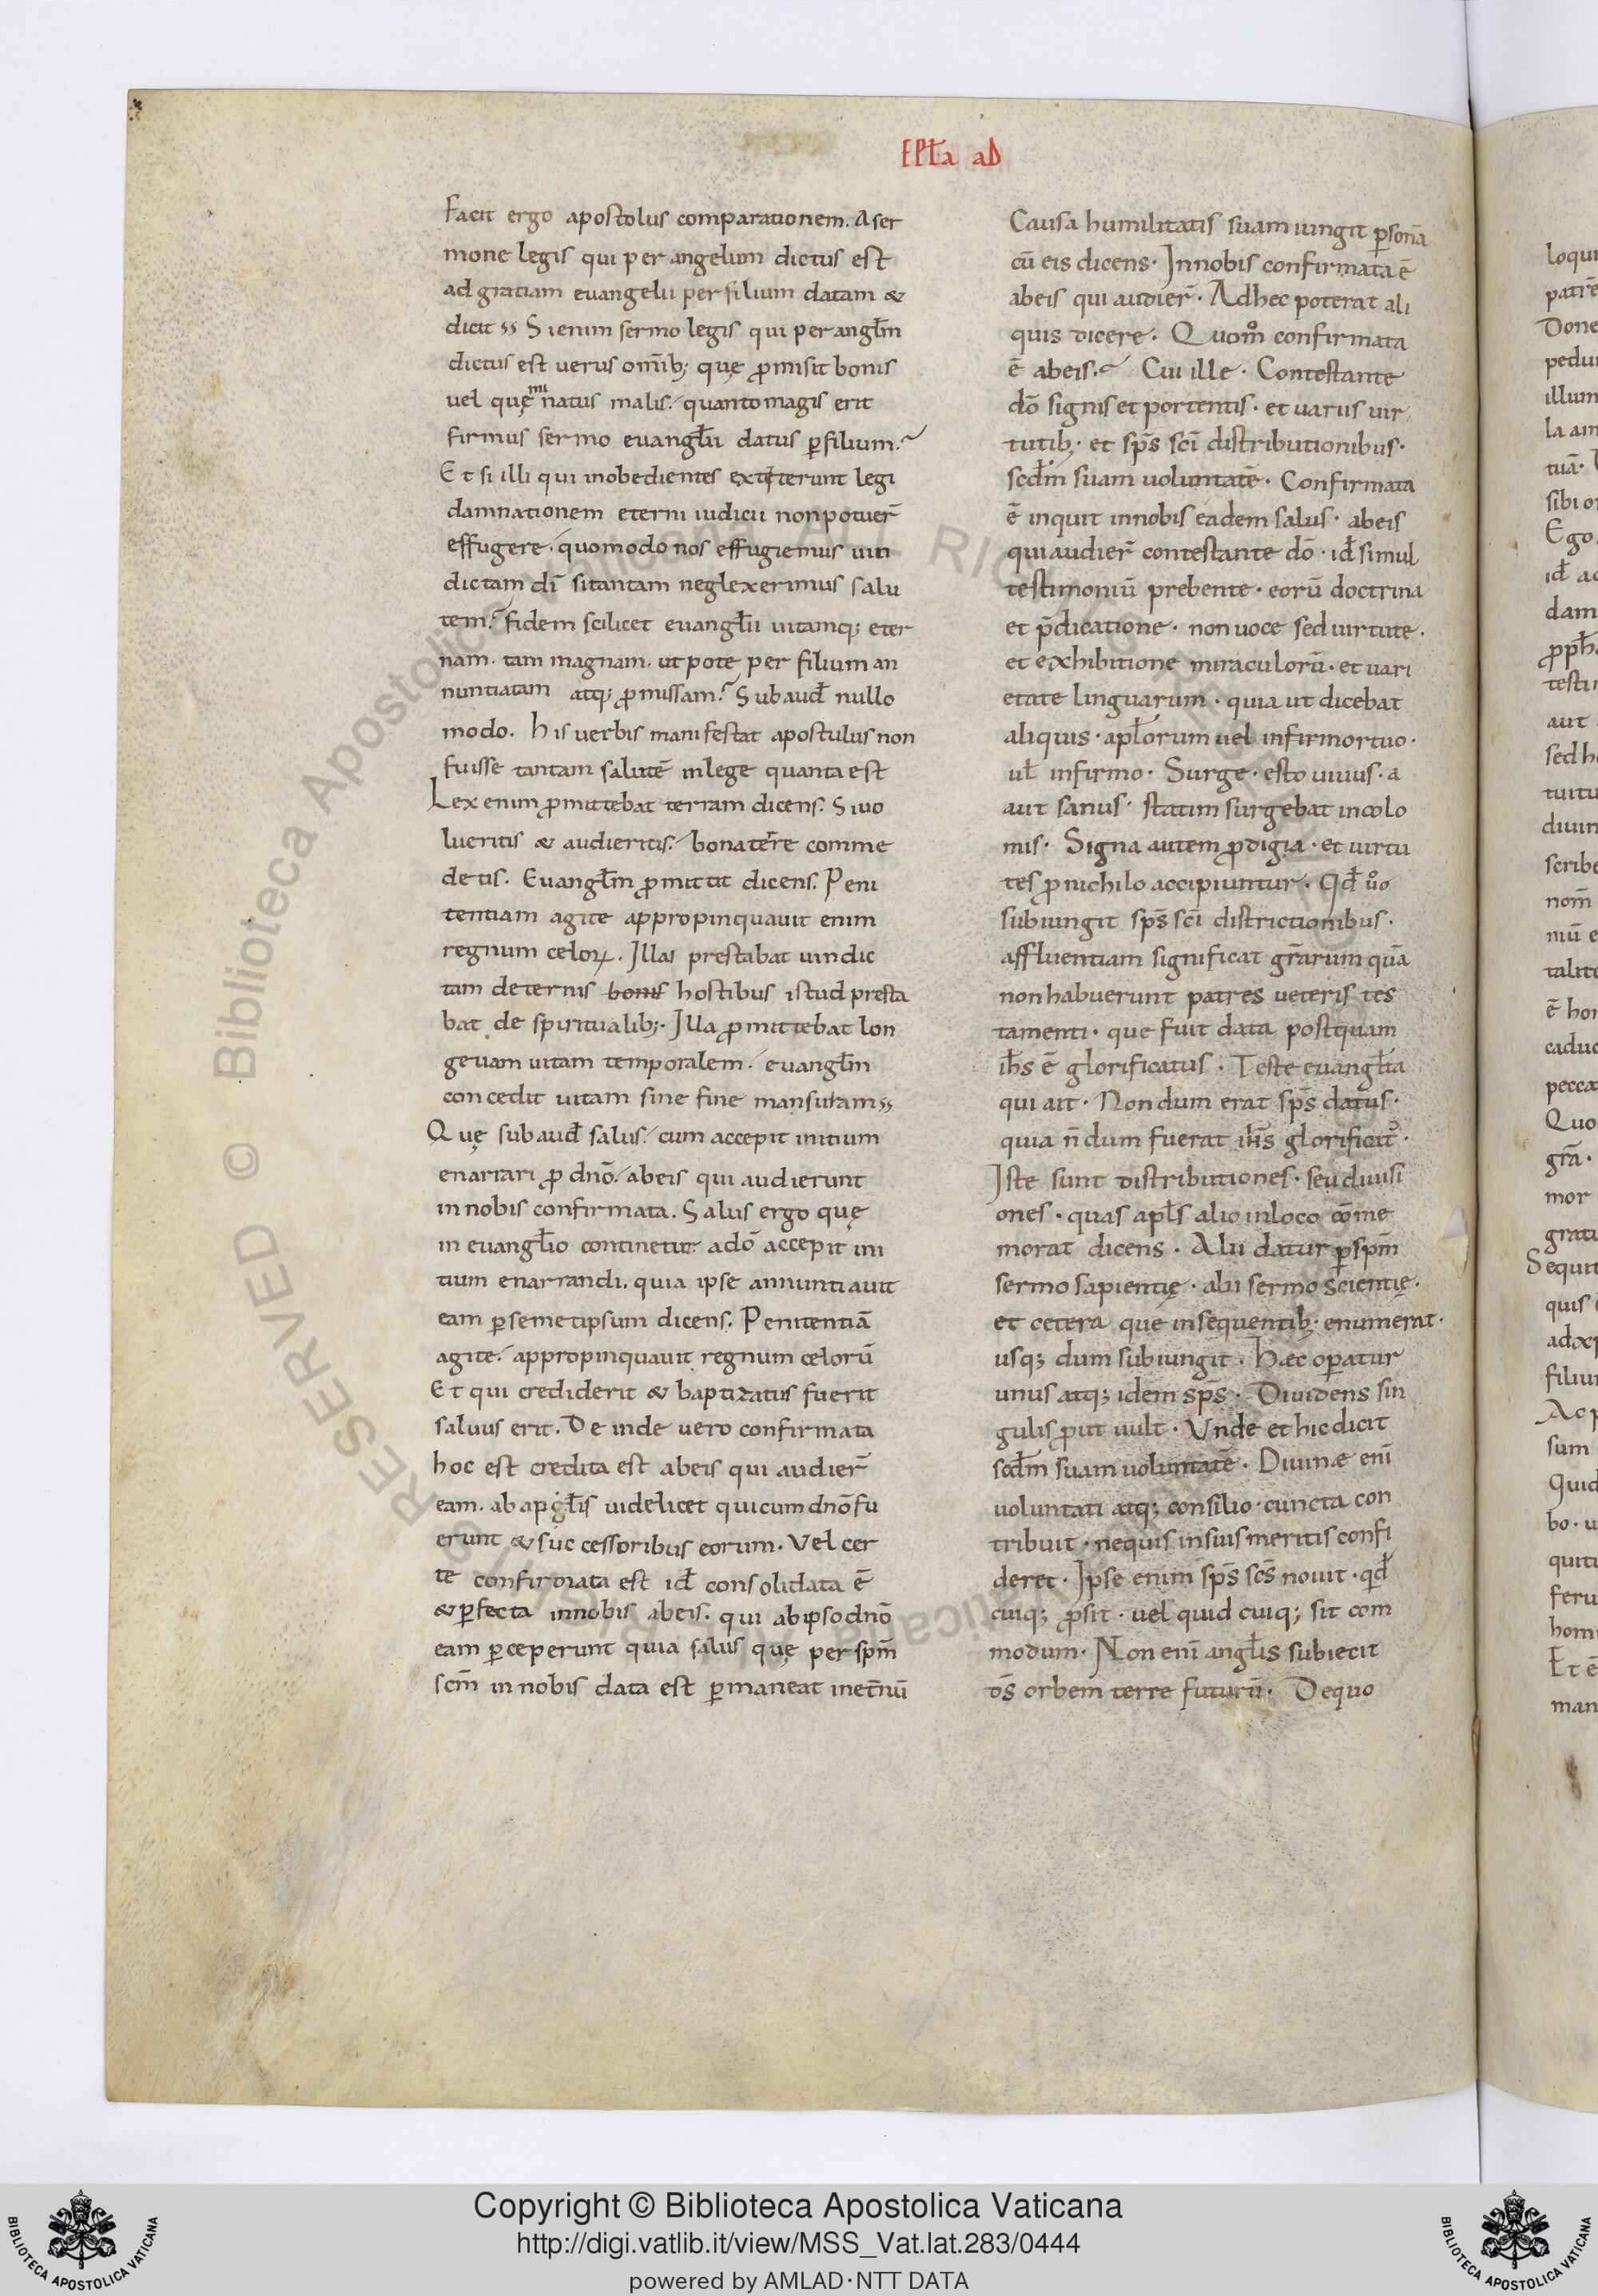 EPLa aD
Facit ergo apostolus comparationem. A ser
mone legis qui per angelum dictus est
ad gratiam euangelii per filium datam &
dicit Si enim sermo legis qui per anglm̄
dictus est uerus omīb; quę ꝓmisit bonis
uel quę minatus malis. quanto magis erit
firmus sermo euanglii datus ꝑ filium.
Et si illi qui inobedientes extiterunt legi
damnationem eterni iudicii non potuer̄
effugere. quomodo nos effugiemus uin
dictam dī si tantam neglexerimus salu
tem. fidem scilicet euanglii uitamq; eter
nam. tam magnam. ut pote per filium an
nuntiatam atq; ꝓmissam. Subaud nullo
modo. His uerbis manifestat apostulus non
fuisse tantam salutē in lege quanta est
Lex enim ꝓmittebat terram dicens. Si uo
lueritis & audieritis. bona terre comme
detis. Euanglm̄ ꝓmittit dicens. Peni
tentiam agite appropinquauit enim
regnum celoꝝ. Illas prestabat uindic
tam de ternis bonis hostibus istud presta
bat de spiritualib;. Illa ꝓmittebat lon
geuam uitam temporalem. euanglm̄
concedit uitam sine fine mansuram
Quę subaud salus. cum accepit initium
enarrari ꝓ dn̄o. ab eis qui audierunt
in nobis confirmata. Salus ergo quę
in euanglio continetur a dō accepit ini
tium enarrandi. quia ipse annuntiauit
eam ꝑ semetipsum dicens. Penitentiā
agite. appropinquauit regnum celorū
Et qui crediderit & baptizatus fuerit
saluus erit. De inde uero confirmata
hoc est credita est ab eis qui audier̄
eam. ab apglis uidelicet qui cum dn̄o fu
erunt & successoribus eorum. Vel cer
te confirmata est id consolidata ē
& ꝑfecta in nobis ab eis. qui ab ipso dn̄o
eam ꝑceperunt quia salus quę per spm̄
scm̄ in nobis data est ꝑmaneat inet̄nū
Causa humilitatis suam iungit ꝑsonā
cū eis dicens. In nobis confirmata ē
ab eis qui audier̄. Ad hec poterat ali
quis dicere. Quom̊ confirmata
ē ab eis. Cui ille. Contestante
dō signis et portentis. et uariis uir
tutib; et sps̄ scī distributionibus.
scdm suam uoluntatē. Confirmata
ē inquit in nobis eadem salus. ab eis
qui audier̄ contestante dō. id simul
testimoniū prebente. eorū doctrina
et p̄dicatione. non uoce sed uirtute.
et exhibitione miraculorū. et uari
etate linguarum. quia ut dicebat
aliquis. aplorum uel infirmortuo.
ul infirmo. Surge. esto uiuus. a
aut sanus. statim surgebat incolo
mis. Signa autem ꝓdigia. et uirtu
tes ꝓ nichilo accipiuntur. Qd uo
subiungit sps̄ scī districtionibus.
affluentiam significat gr̄arum quā
non habuerunt patres ueteris tes
tamenti. que fuit data postquam
ihs ē glorificatus. Teste euanglta
qui ait. Non dum erat sps̄ datus.
quia n̄ dum fuerat ihs glorificat᾽.
Iste sunt distributiones. seu diuisi
ones. quas apls alio in loco cōme
morat dicens. Alii datur ꝑ spm̄
sermo sapientię. alii sermo scientię.
et cetera que in sequentib; enumerat.
usq; dum subiungit. Hæc oꝑatur
unus atq; idem sps̄. Diuidens sin
gulis ꝓut uult. Vnde et hic dicit
scdm suam uoluntatē. Diuinæ enī
uoluntati atq; consilio cuncta con
tribuit. nequis in suis meritis confi
deret. Ipse enim sps̄ scs̄ nouit. qd
cuiq; ꝓsit. uel quid cuiq; sit com
modum. Non enī anglis subiecit
ds̄ orbem terre futurū. De quo
Copyright © Biblioteca Apostolica Vaticana
http://digi.vatlib.it/view/MSS_Vat.lat.283/0444
powered by AMLAD·NTT DATA